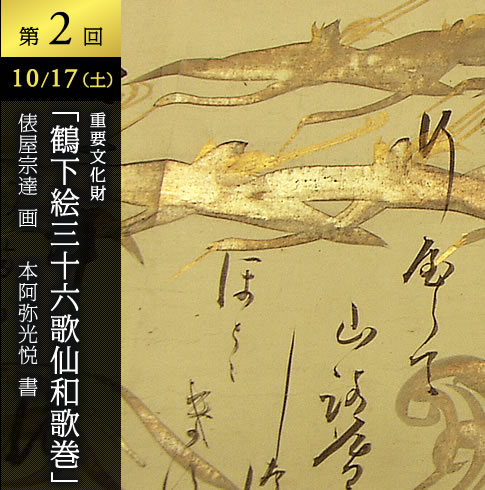 第2回
10/17(土)
重要文化財
「鶴下絵三十六歌仙和歌巻」
俵屋宗達 画 本阿弥光悦 書
行
山路
ほとゝ